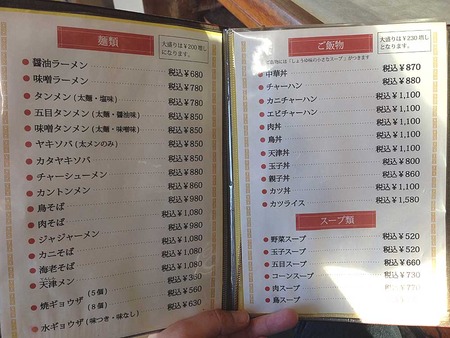 麺類
大盛りは￥200増しになります。
醤油ラーメン 税込￥680
味噌ラーメン 税込￥780
タンメン(太麺・塩味) 税込￥780
五目タンメン(太麺・醤油味) 税込￥850
味噌タンメン(太麺・味噌味) 税込￥850
ヤキソバ(太メンのみ) 税込￥850
カタヤキソバ 税込￥850
チャーシューメン 税込￥880
カントンメン 税込￥860
鳥そば 税込￥980
肉そば 税込￥1,080
ジャジャーメン 税込￥980
カニそば 税込￥1,080
海老そば 税込￥1,080
天津メン 税込￥1,080
焼ギョウザ(5個) 税込￥350
(8個) 税込￥560
水ギョウザ(味つき・味なし) 税込￥630
ご飯物
大盛りは￥230増しとなります。
ご飯物には「しょうゆ味の小さなスープ」がつきます
中華丼 税込￥870
チャーハン 税込￥880
カニチャーハン 税込￥1,100
エビチャーハン 税込￥1,100
肉丼 税込￥1,100
鳥丼 税込￥1,100
天津丼 税込￥1,100
玉子丼 税込￥800
親子丼 税込￥860
カツ丼 税込￥1,100
カツライス 税込￥1,580
スープ類
野菜スープ 税込￥520
玉子スープ 税込￥520
五目スープ 税込￥660
コーンスープ 税込￥730
肉スープ 税込￥770
鳥スープ